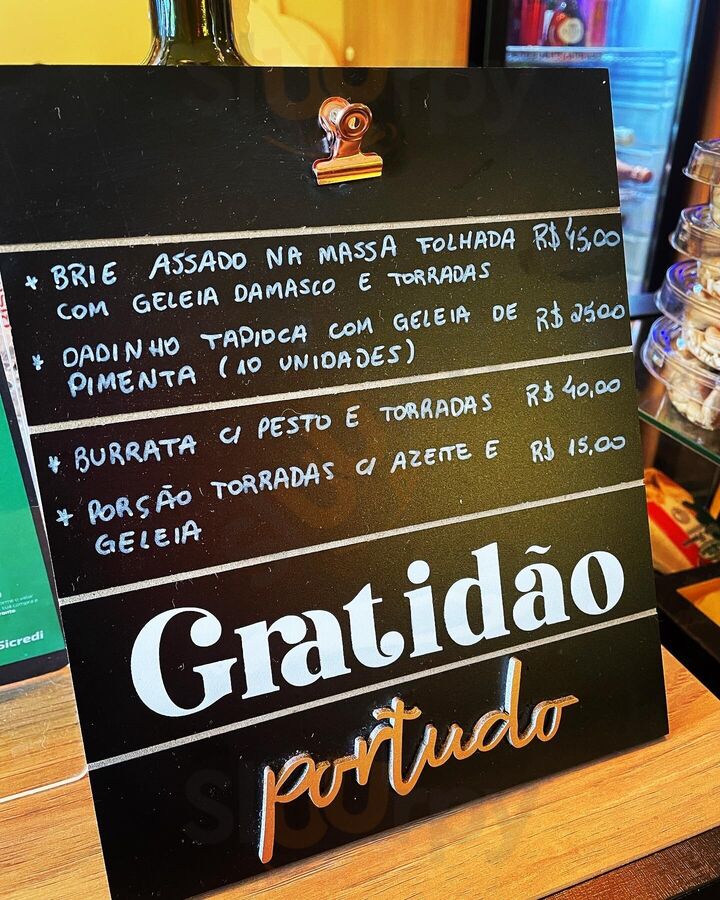 * BRIE ASSADO NA MASSA FOLHADA R$ 45,00
COM GELEIA DAMASCO E TORRADAS
* DADINHO TAPIOCA COM GELEIA DE R$ 25,00
PIMENTA (10 UNIDADES)
* BURRATA C/ PESTO E TORRADAS R$ 40,00
* PORÇÃO TORRADAS C/ AZEITE E R$ 15,00
GELEIA
Gratidão
portudo
Sicredi